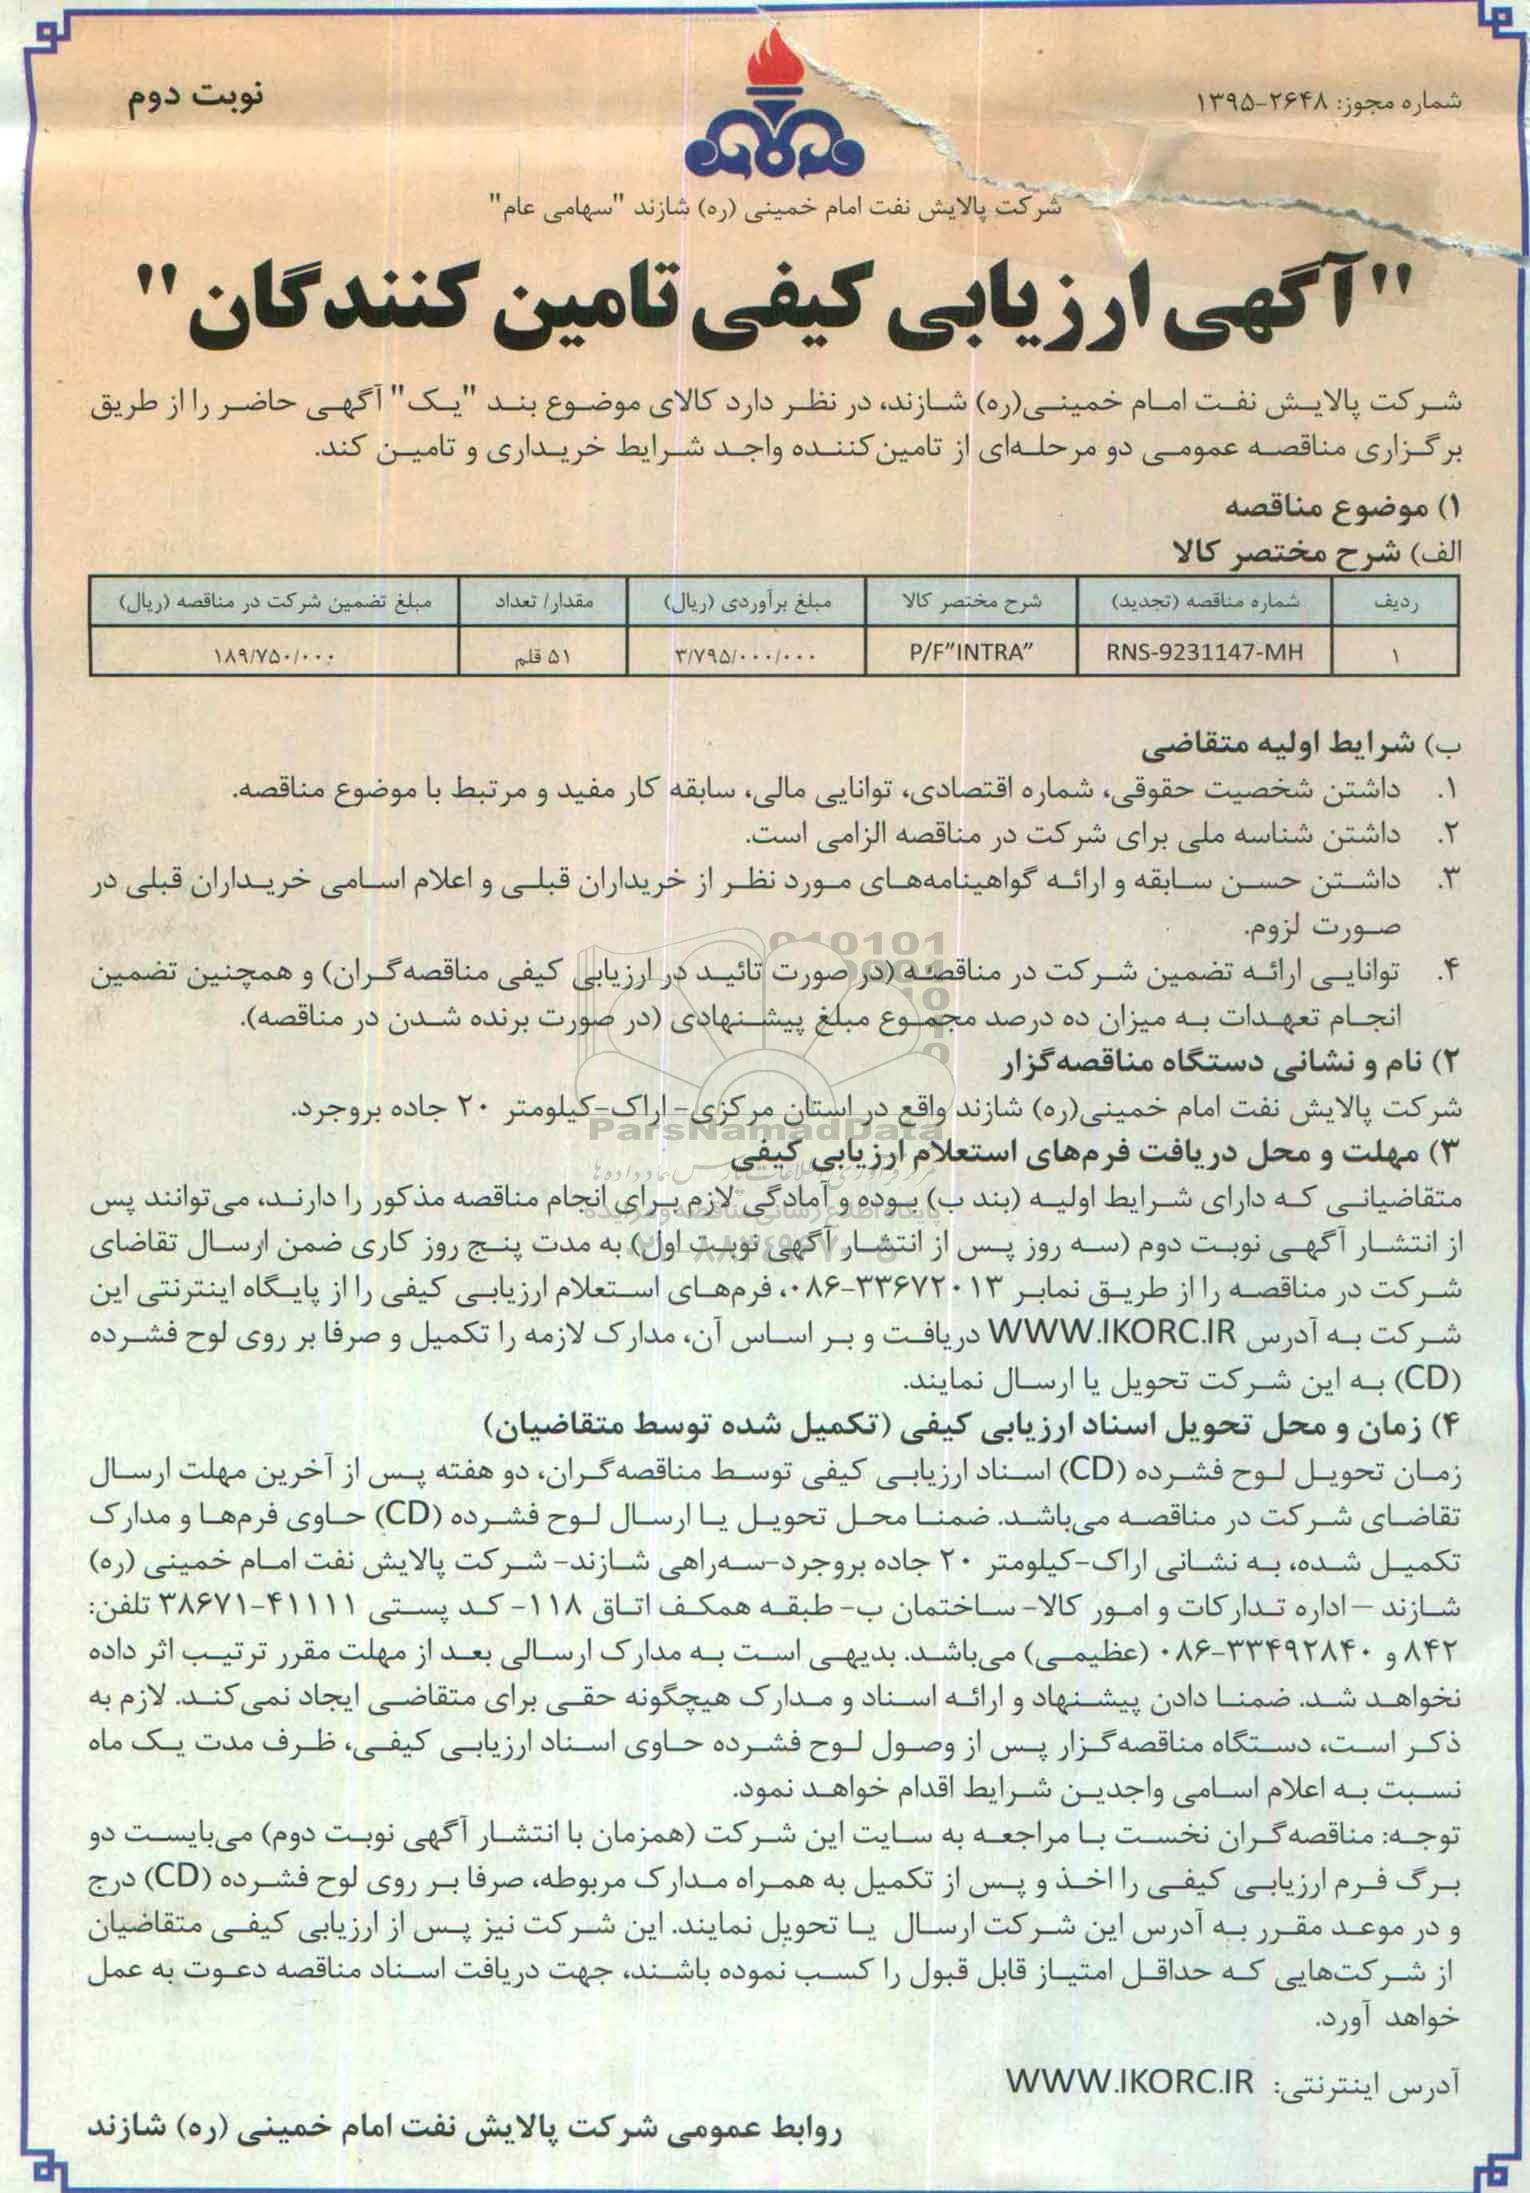 شماره مجوز: ۲۶۴۸-۱۳۹۵
نوبت دوم
شرکت پالایش نفت امام خمینی (ره) شازند "سهامی عام"
"آگهی ارزیابی کیفی تامین کنندگان"
شرکت پالایش نفت امام خمینی(ره) شازند، در نظر دارد کالای موضوع بند "یک" آگهی حاضر را از طریق
برگزاری مناقصه عمومی دو مرحله‌ای از تامین‌کننده واجد شرایط خریداری و تامین کند.
۱) موضوع مناقصه
الف) شرح مختصر کالا
ردیف | شماره مناقصه (تجدید) | شرح مختصر کالا | مبلغ برآوردی (ریال) | مقدار/ تعداد | مبلغ تضمین شرکت در مناقصه (ریال)
۱ | RNS-9231147-MH | P/F"INTRA" | ۳/۷۹۵/۰۰۰/۰۰۰ | ۵۱ قلم | ۱۸۹/۷۵۰/۰۰۰
ب) شرایط اولیه متقاضی
۱. داشتن شخصیت حقوقی، شماره اقتصادی، توانایی مالی، سابقه کار مفید و مرتبط با موضوع مناقصه.
۲. داشتن شناسه ملی برای شرکت در مناقصه الزامی است.
۳. داشتن حسن سابقه و ارائه گواهینامه‌های مورد نظر از خریداران قبلی و اعلام اسامی خریداران قبلی در
صورت لزوم.
۴. توانایی ارائه تضمین شرکت در مناقصه (در صورت تائید در ارزیابی کیفی مناقصه‌گران) و همچنین تضمین
انجام تعهدات به میزان ده درصد مجموع مبلغ پیشنهادی (در صورت برنده شدن در مناقصه).
۲) نام و نشانی دستگاه مناقصه‌گزار
شرکت پالایش نفت امام خمینی(ره) شازند واقع در استان مرکزی- اراک-کیلومتر ۲۰ جاده بروجرد.
ParsNamadData
۳) مهلت و محل دریافت فرم‌های استعلام ارزیابی کیفی
متقاضیانی که دارای شرایط اولیه (بند ب) بوده و آمادگی لازم برای انجام مناقصه مذکور را دارند، می‌توانند پس
از انتشار آگهی نوبت دوم (سه روز پس از انتشار آگهی نوبت اول) به مدت پنج روز کاری ضمن ارسال تقاضای
شرکت در مناقصه را از طریق نمابر ۳۳۶۷۲۰۱۳-۰۸۶، فرم‌های استعلام ارزیابی کیفی را از پایگاه اینترنتی این
شرکت به آدرس WWW.IKORC.IR دریافت و بر اساس آن، مدارک لازمه را تکمیل و صرفا بر روی لوح فشرده
(CD) به این شرکت تحویل یا ارسال نمایند.
۴) زمان و محل تحویل اسناد ارزیابی کیفی (تکمیل شده توسط متقاضیان)
زمان تحویل لوح فشرده (CD) اسناد ارزیابی کیفی توسط مناقصه‌گران، دو هفته پس از آخرین مهلت ارسال
تقاضای شرکت در مناقصه می‌باشد. ضمنا محل تحویل یا ارسال لوح فشرده (CD) حاوی فرم‌ها و مدارک
تکمیل شده، به نشانی اراک-کیلومتر ۲۰ جاده بروجرد-سه‌راهی شازند- شرکت پالایش نفت امام خمینی (ره)
شازند – اداره تدارکات و امور کالا- ساختمان ب- طبقه همکف اتاق ۱۱۸- کد پستی ۴۱۱۱۱-۳۸۶۷۱ تلفن:
۸۴۲ و ۳۳۴۹۲۸۴۰-۰۸۶ (عظیمی) می‌باشد. بدیهی است به مدارک ارسالی بعد از مهلت مقرر ترتیب اثر داده
نخواهد شد. ضمنا دادن پیشنهاد و ارائه اسناد و مدارک هیچگونه حقی برای متقاضی ایجاد نمی‌کند. لازم به
ذکر است، دستگاه مناقصه‌گزار پس از وصول لوح فشرده حاوی اسناد ارزیابی کیفی، ظرف مدت یک ماه
نسبت به اعلام اسامی واجدین شرایط اقدام خواهد نمود.
توجه: مناقصه‌گران نخست با مراجعه به سایت این شرکت (همزمان با انتشار آگهی نوبت دوم) می‌بایست دو
برگ فرم ارزیابی کیفی را اخذ و پس از تکمیل به همراه مدارک مربوطه، صرفا بر روی لوح فشرده (CD) درج
و در موعد مقرر به آدرس این شرکت ارسال یا تحویل نمایند. این شرکت نیز پس از ارزیابی کیفی متقاضیان
از شرکت‌هایی که حداقل امتیاز قابل قبول را کسب نموده باشند، جهت دریافت اسناد مناقصه دعوت به عمل
خواهد آورد.
آدرس اینترنتی: WWW.IKORC.IR
روابط عمومی شرکت پالایش نفت امام خمینی (ره) شازند